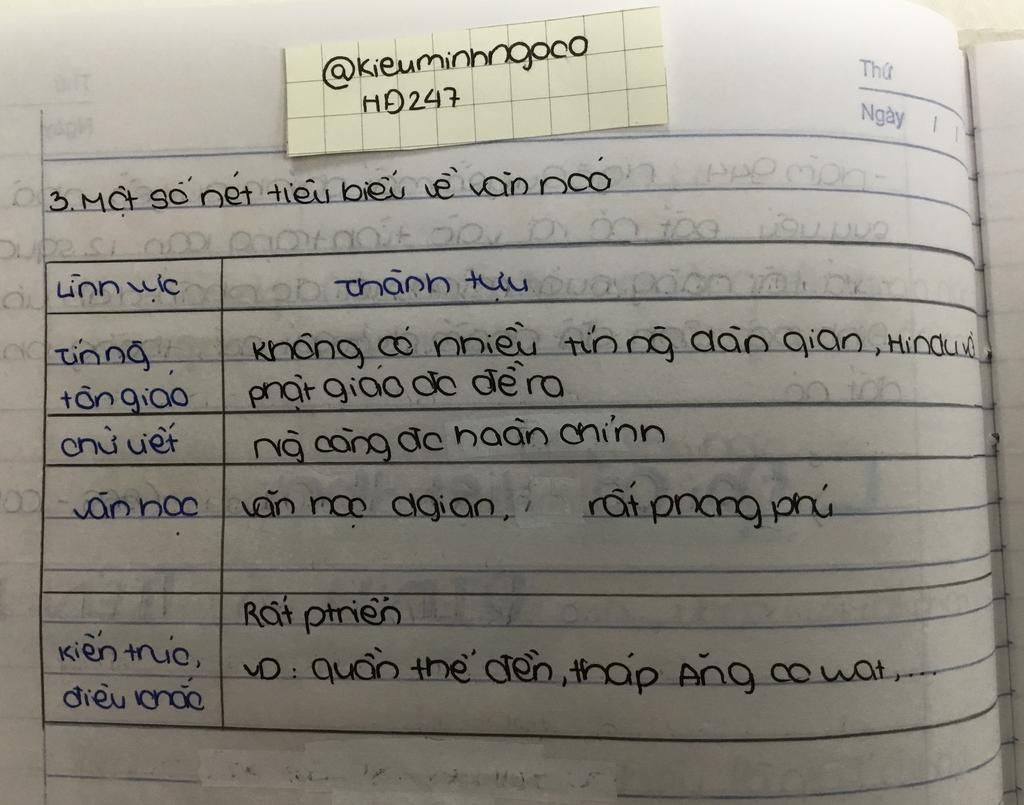 @kieuminhngoco
HĐ247
Thứ
Ngày
3. Một số nét tiêu biểu về văn hoá
Lĩnh vực Thành tựu
Tín ng̃ Không có nhiều tín ng̃ dân gian, Hindu và
tôn giáo phật giáo đc đề ra
chữ viết Ng̃ càng đc hoàn chỉnh
văn học văn học dgian, rất phong phú
Rất ptriển
kiến trúc, VD: quần thể đền, tháp Ăng co wat,...
điêu khắc